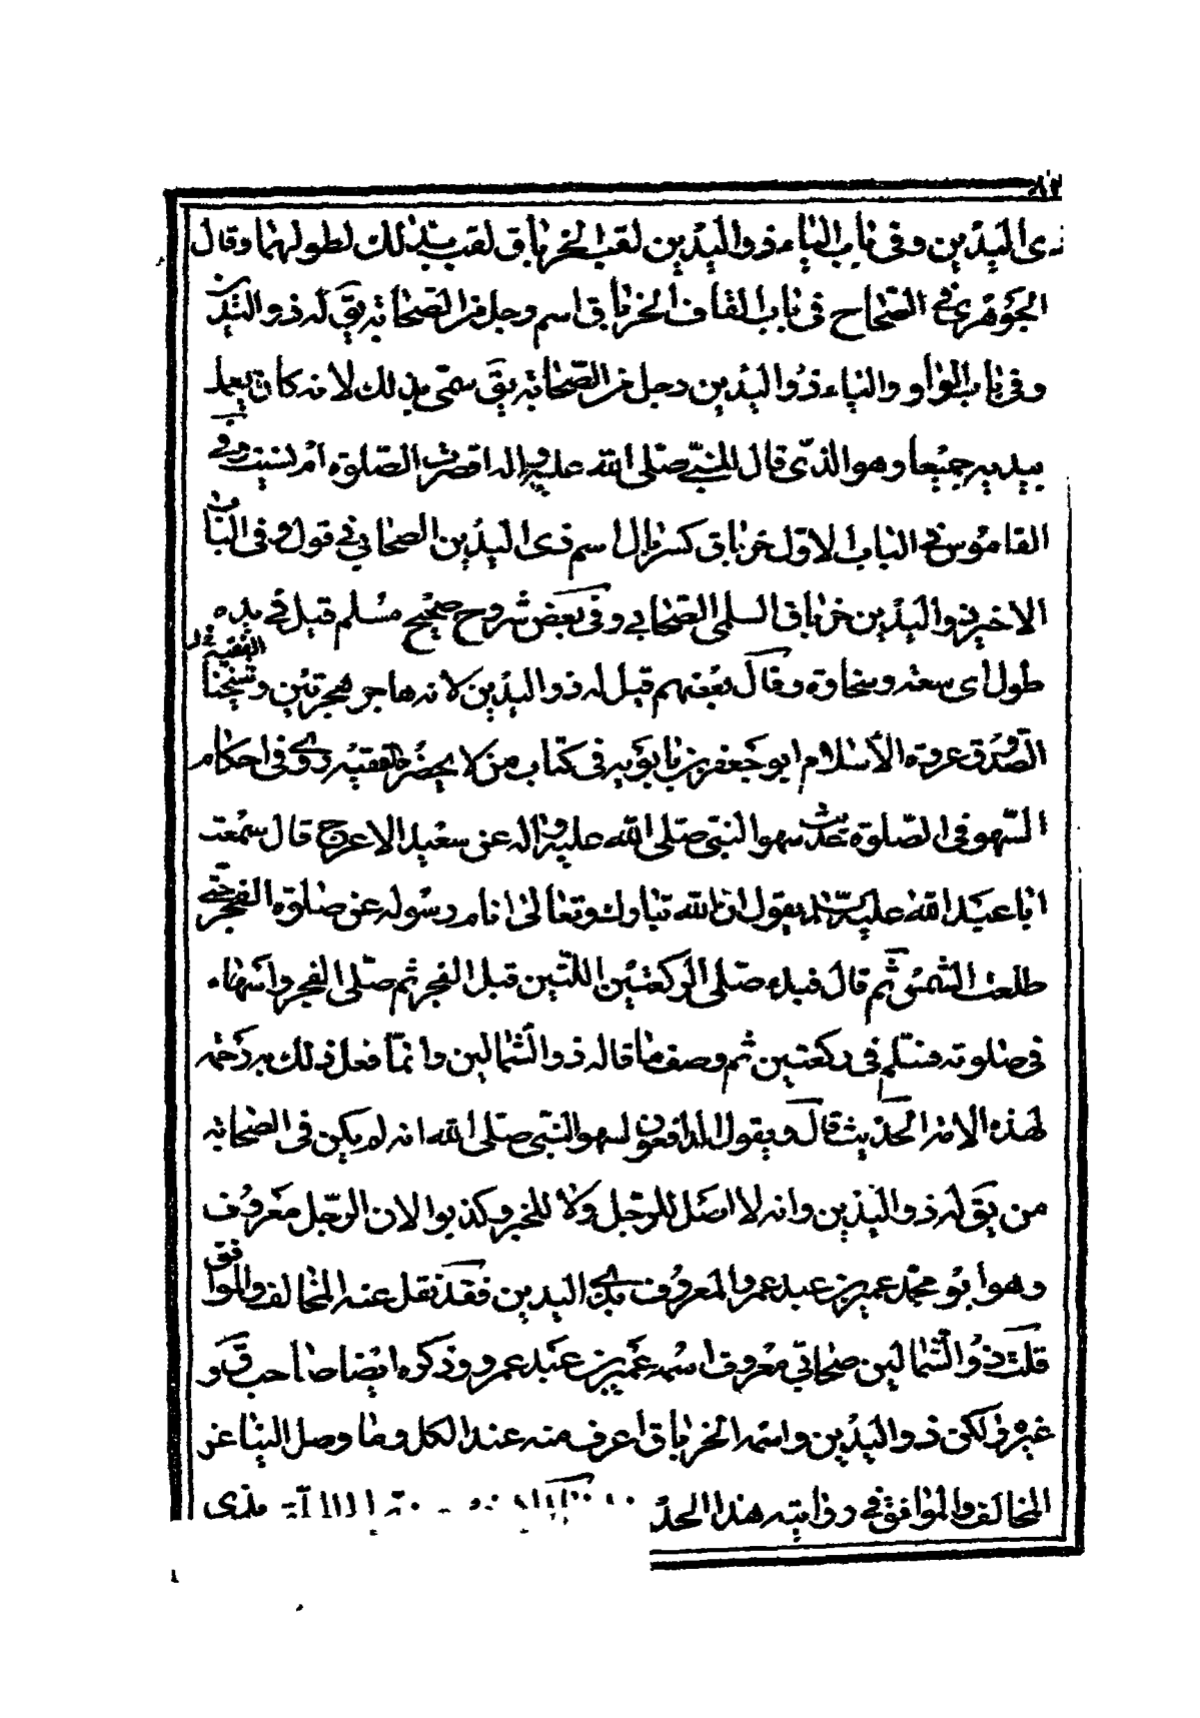 ٨٢
ذى اليدين وفى باب الياء ذو اليدين لقب الخرباق لقب بذلك لطولهما وقال
الجوهرى فى الصحاح فى باب القاف الخرباق اسم رجل من الصحابة يق له ذو اليدين
وفى باب الواو والياء ذو اليدين رجل من الصحابة يق سمّى بذلك لانه كان يعمل
بيديه جميعا وهو الذى قال للنبىّ صلى الله عليه واله اقصرت الصلوة ام نسيت وفى
القاموس فى الباب الاول خرباق كسربال اسم ذى اليدين الصحابى فى قول وفى الباب
الاخير ذو اليدين خرباق السلمى الصحابى وفى بعض شروح صحيح مسلم قيل فى يده
طول اى سعته وسخاوة وقال بعضهم قيل له ذو اليدين لانه هاجر هجرتين وشيخنا الفقيه
الصدوق عروة الاسلام ابو جعفر بن بابويه فى كتاب من لا يحضره الفقيه روى فى احكام
السهو فى الصلوة حديث سهو النبى صلى الله عليه واله عن سعيد الاعرج قال سمعت
ابا عبد الله عليه السلام يقول ان الله تبارك وتعالى انام رسوله عن صلوة الفجر حتى
طلعت الشمس ثم قال فبدء صلى الركعتين اللتين قبل الفجر ثم صلى الفجر واسهاه
فى صلوته فسلم فى ركعتين ثم وصف ما قاله ذو الشمالين وانما فعل ذلك به رحمة
لهذه الامة الحديث قال ويقول الدافعون لسهو النبى صلى الله انه لم يكن فى الصحابة
من يق له ذو اليدين وانه لا اصل للرجل ولا للخبر وكذبوا لان الرجل معروف
وهو ابو محمد عمير بن عبد عمرو المعروف بذى اليدين فقد نقل عنه المخالف والموافق
قلت ذو الشمالين صحابى معروف اسمه عمير بن عبد عمرو وذكره ايضا صاحب ق و
غيره ولكن ذو اليدين واسمه الخرباق اعرف منه عند الكل وما وصل الينا عن
المخالف والموافق فى رواية هذا الحد